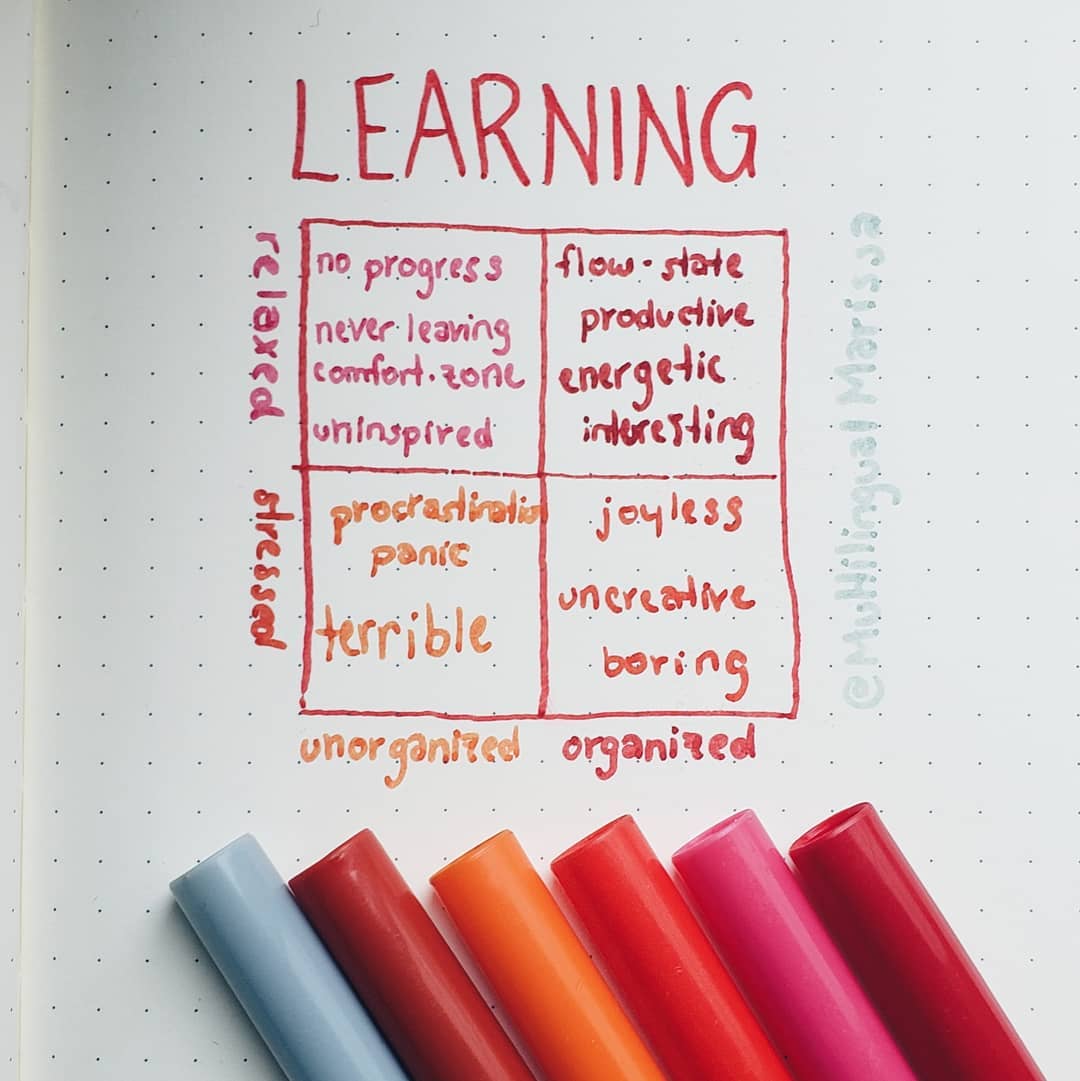 LEARNING
relaxed
no progress
never leaving
comfort-zone
uninspired
flow-state
productive
energetic
interesting
stressed
procrastination
panic
terrible
joyless
uncreative
boring
unorganized
organized
@Multilingual Marissa